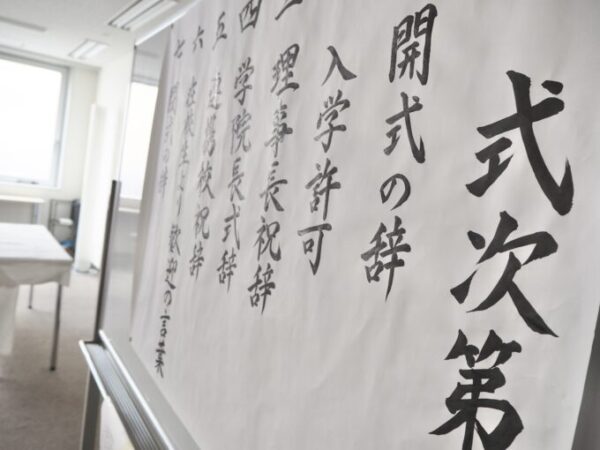 式次第
開式の辞
入学許可
理事長祝辞
四 学院長式辞
五 連携校祝辞
六 在校生より歓迎の言葉
七 閉式の辞